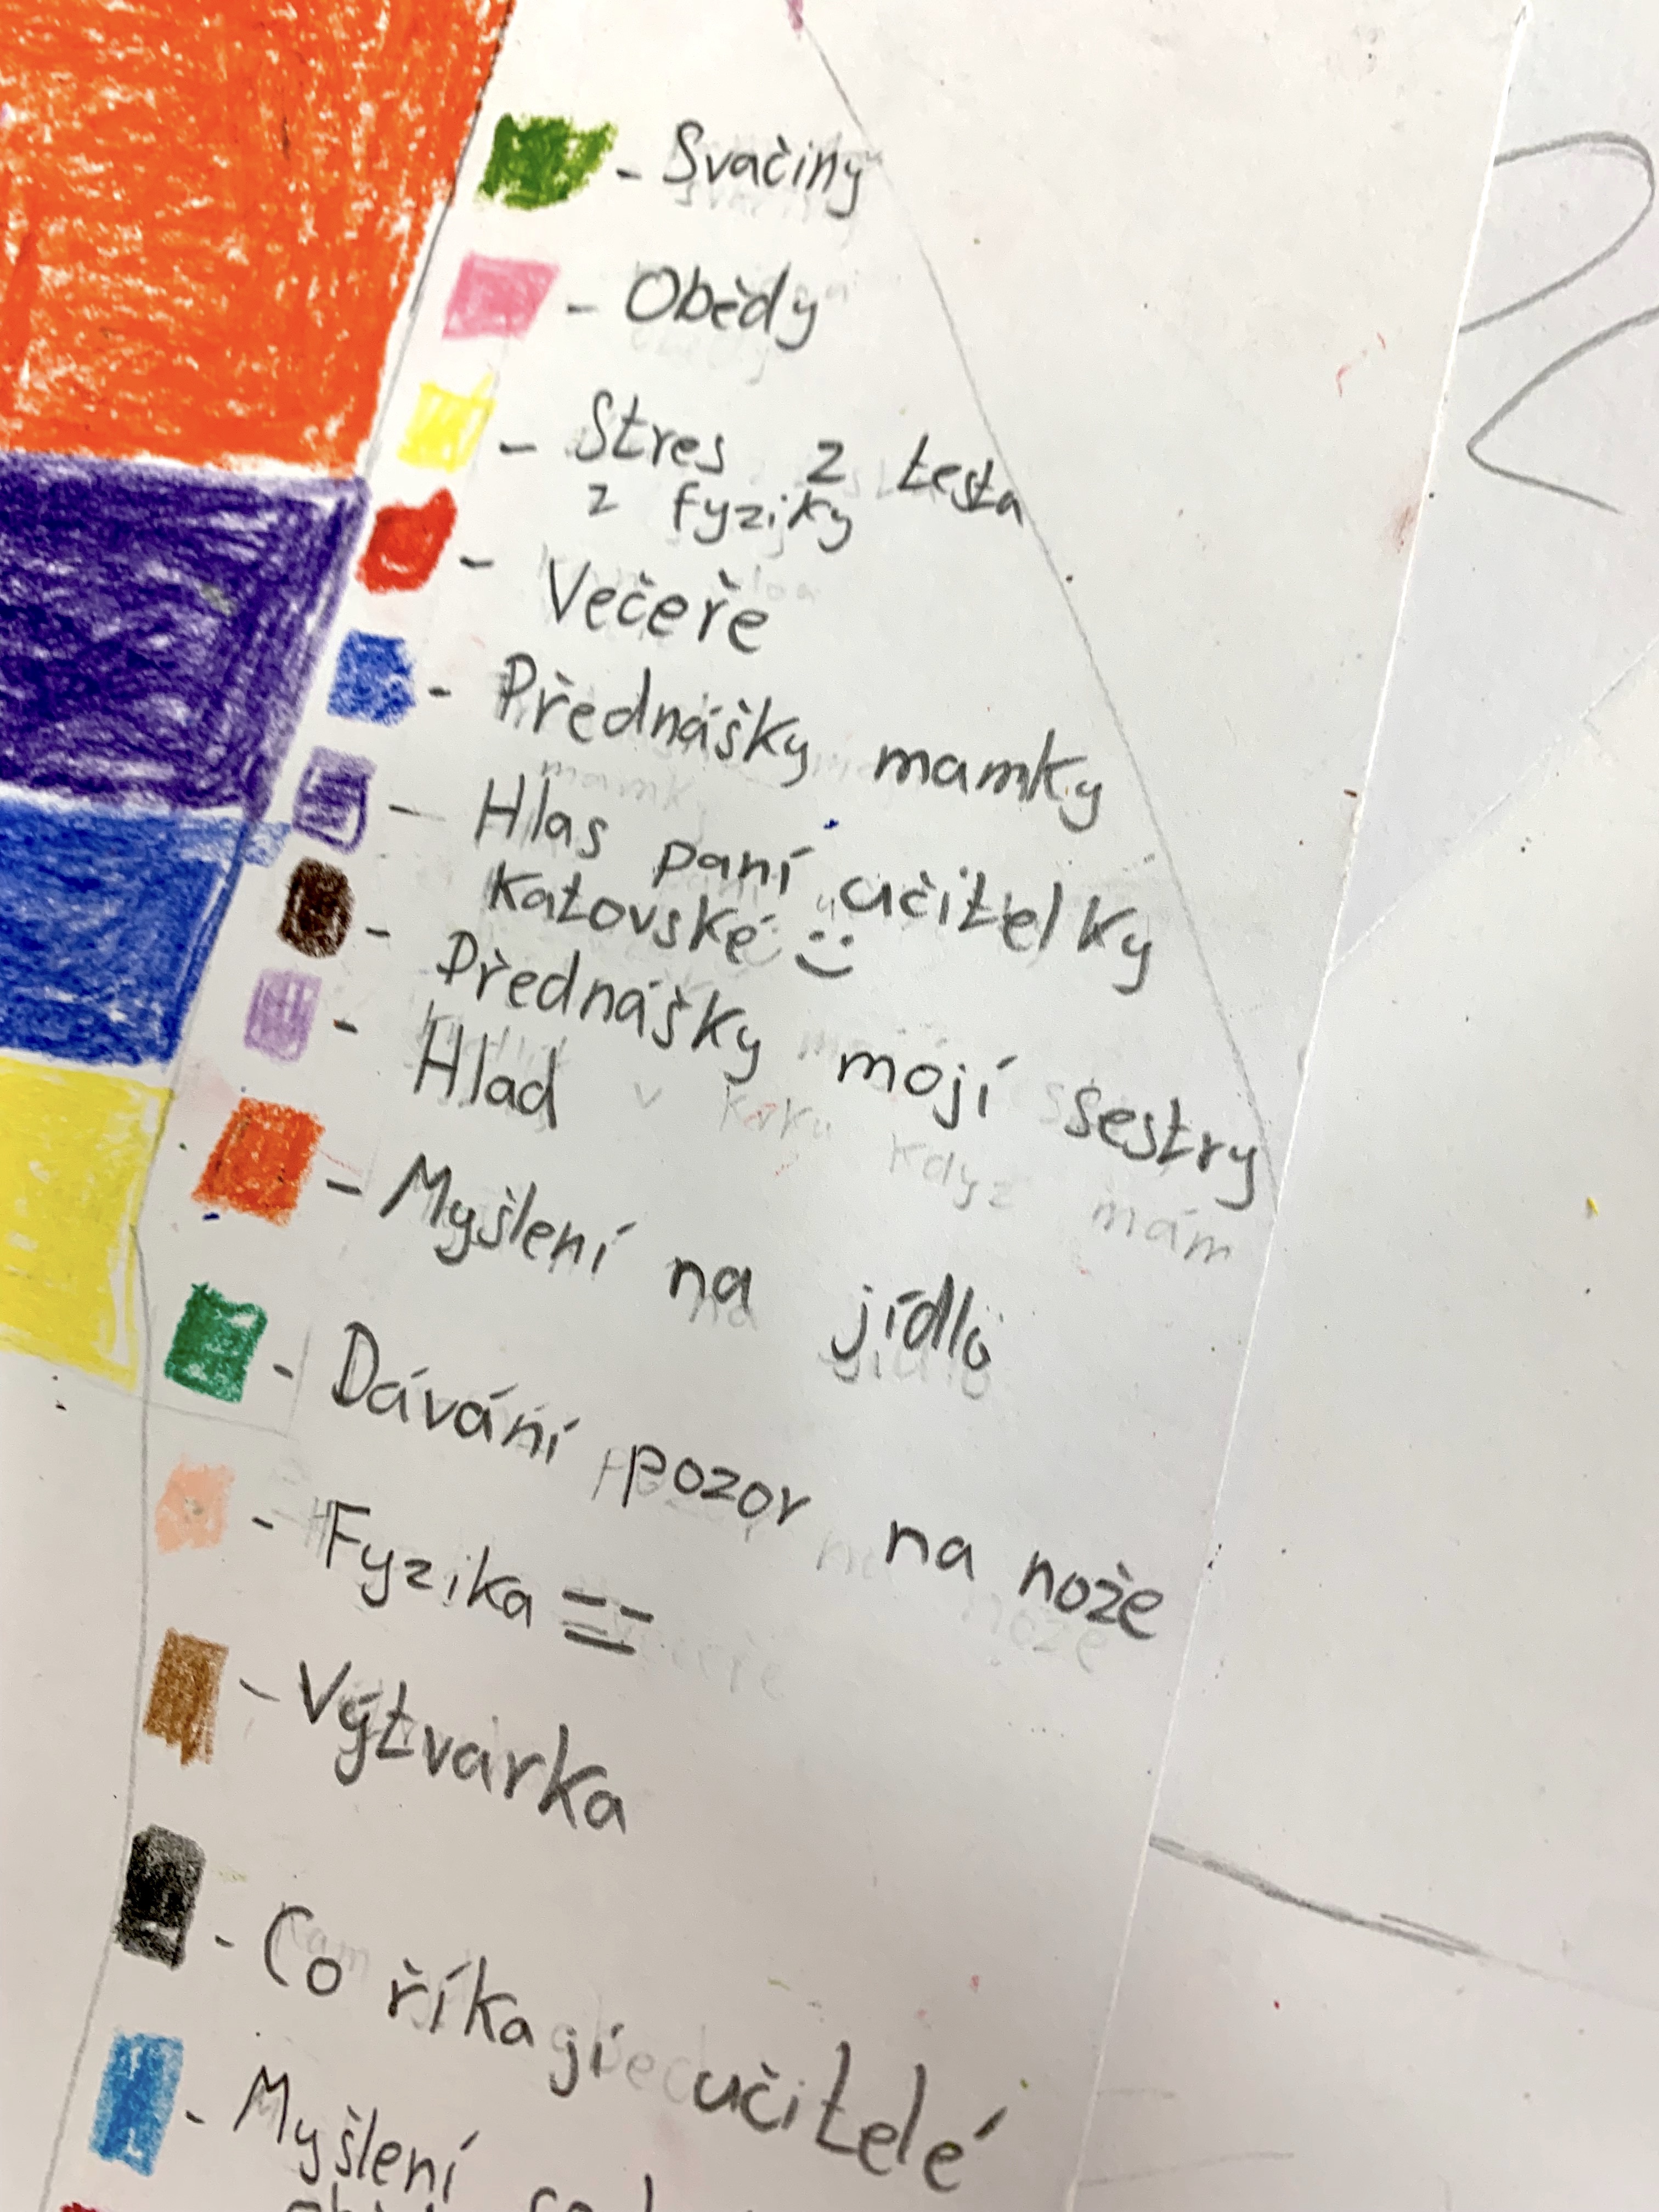 - Svačiny
- Obědy
- Stres z testa
z fyziky
- Večeře
- Přednášky mamky
- Hlas paní učitelky
Katovské
- Přednášky mojí sestry
- Hlad
- Myšlení na jídlo
- Dávání pozor na nože
- Fyzika
- Výtvarka
- Co říkají učitelé
- Myšlení